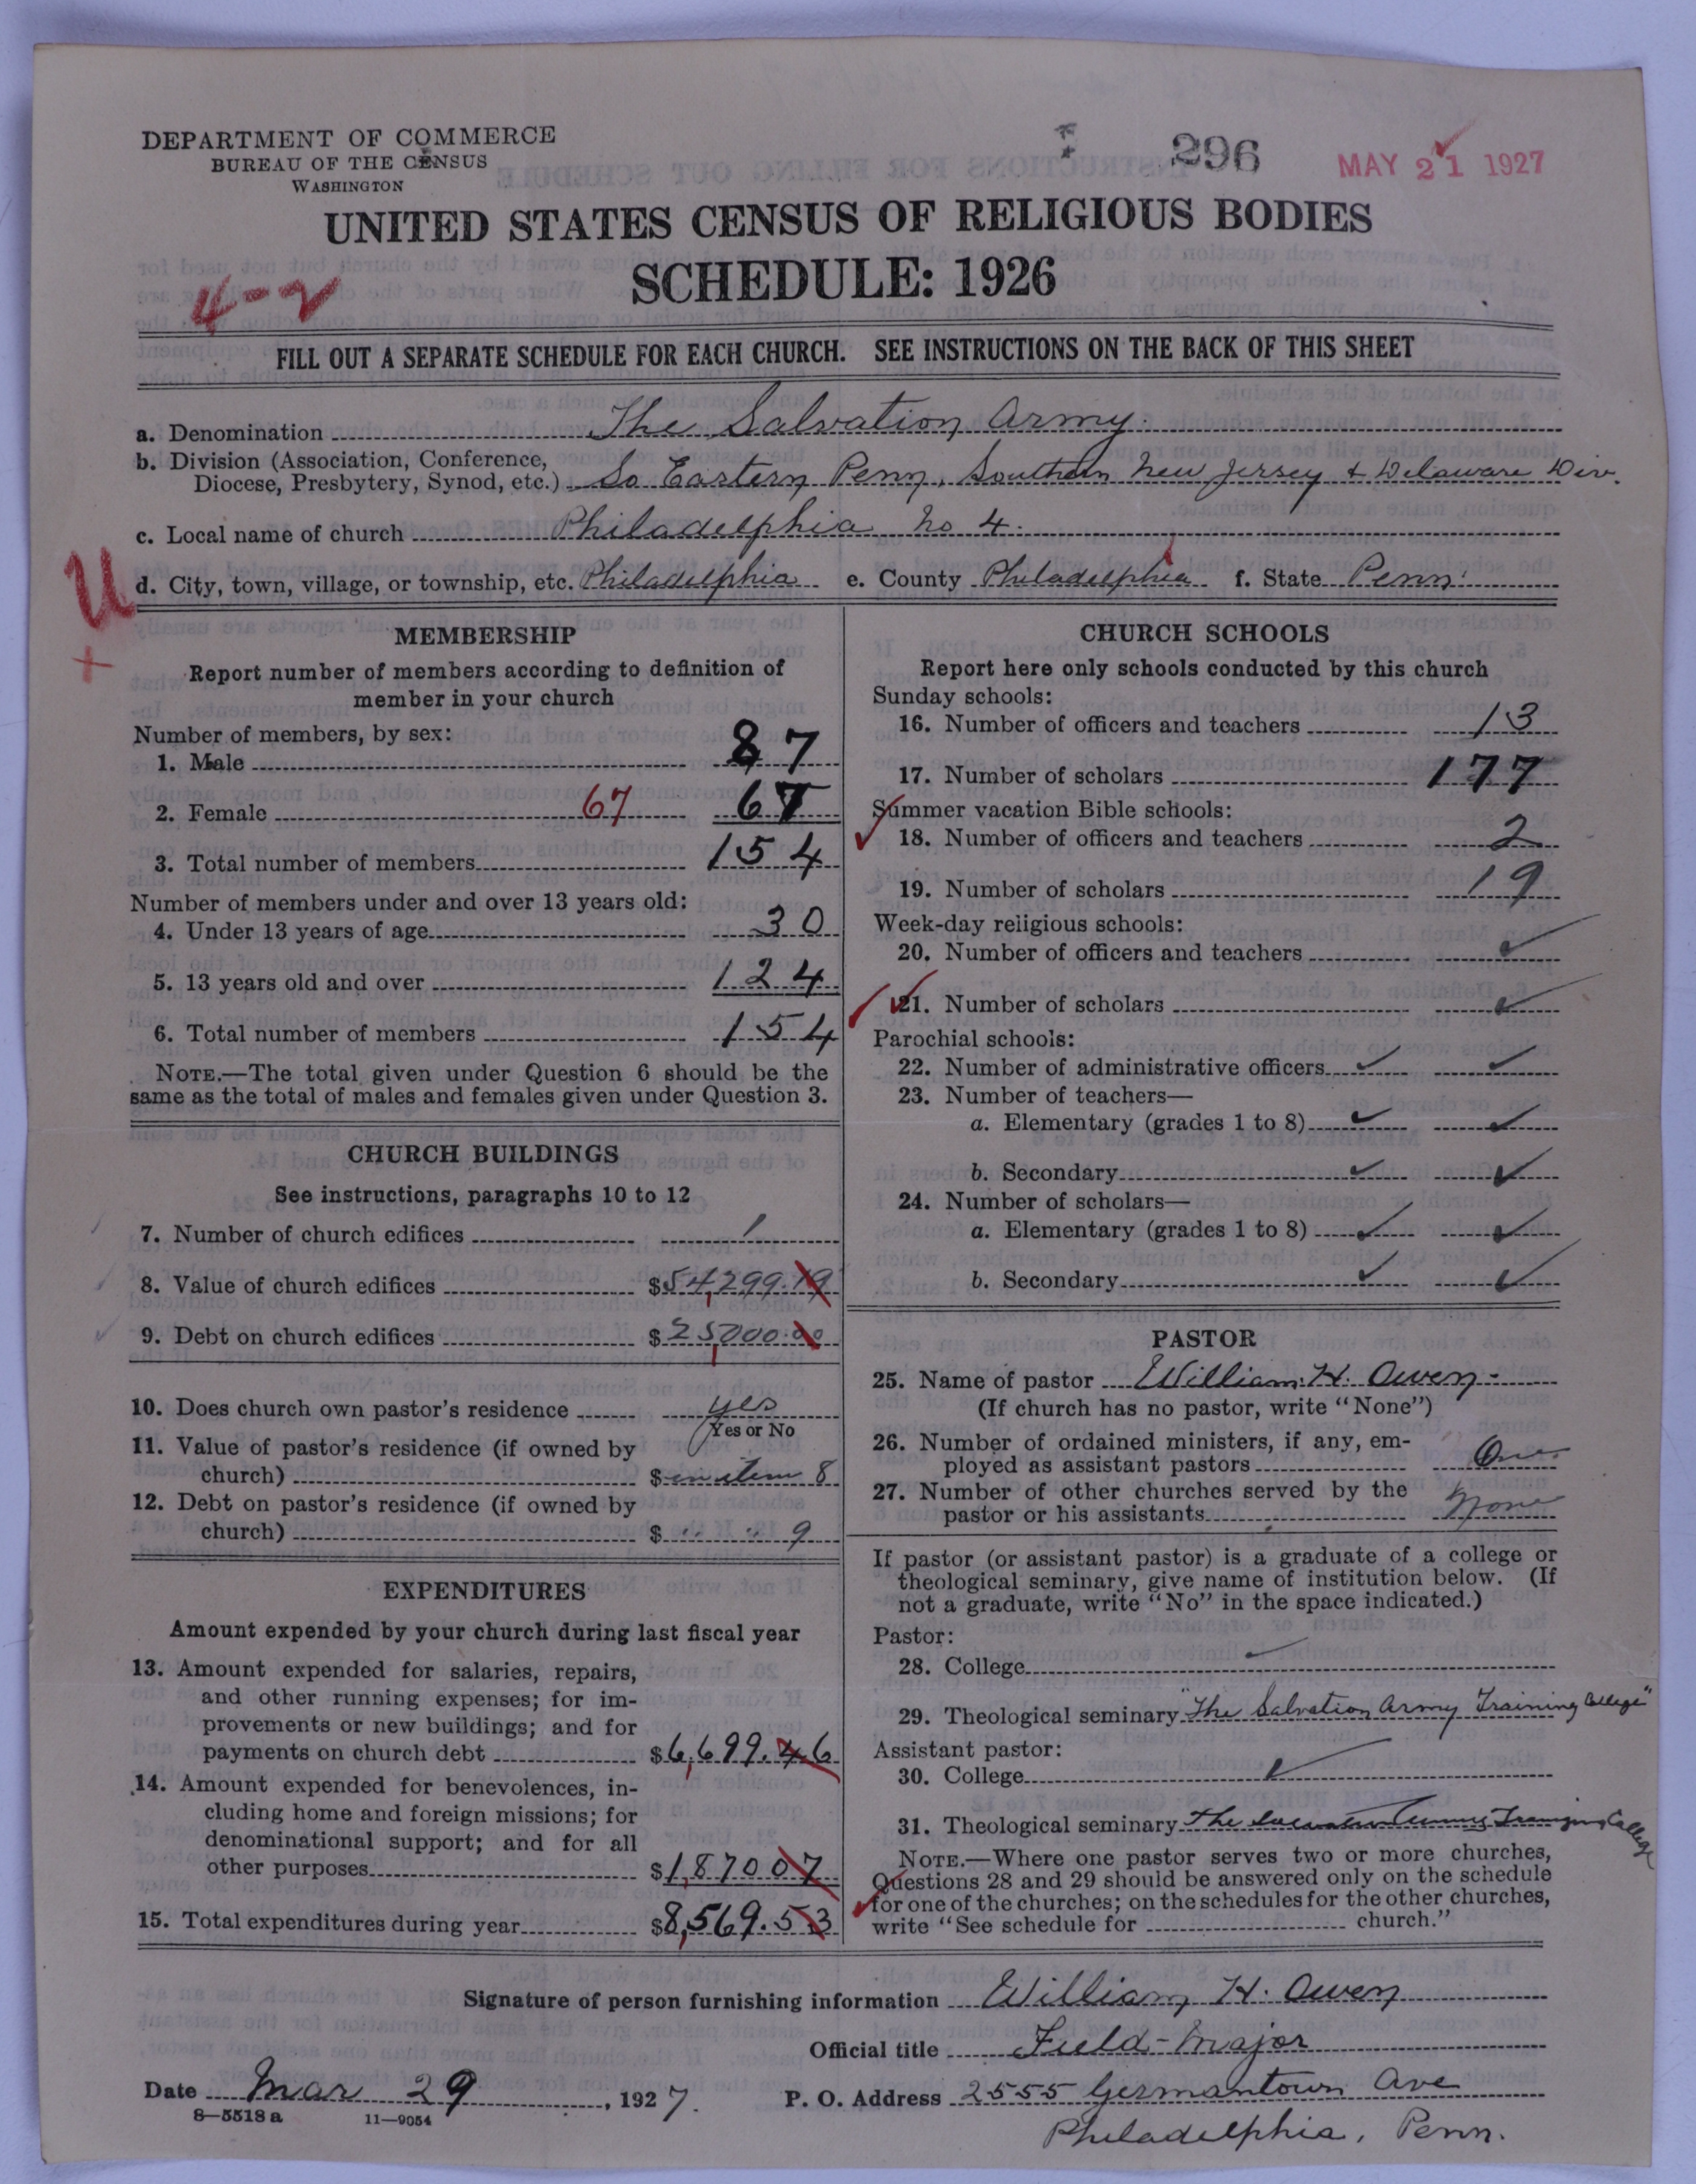 DEPARTMENT OF COMMERCE
BUREAU OF THE CENSUS
WASHINGTON
296
MAY 21 1927
UNITED STATES CENSUS OF RELIGIOUS BODIES
SCHEDULE: 1926
4-2
FILL OUT A SEPARATE SCHEDULE FOR EACH CHURCH. SEE INSTRUCTIONS ON THE BACK OF THIS SHEET
a. Denomination The Salvation Army.
b. Division (Association, Conference,
Diocese, Presbytery, Synod, etc.) So Eastern Penn, Southern New Jersey & Delaware Div.
c. Local name of church Philadelphia No 4.
U
d. City, town, village, or township, etc. Philadelphia e. County Philadelphia f. State Penn.
+
MEMBERSHIP
Report number of members according to definition of
member in your church
Number of members, by sex:
1. Male 87
2. Female 67 67
3. Total number of members 154
Number of members under and over 13 years old:
4. Under 13 years of age 30
5. 13 years old and over 124
6. Total number of members 154
NOTE.—The total given under Question 6 should be the
same as the total of males and females given under Question 3.
CHURCH BUILDINGS
See instructions, paragraphs 10 to 12
7. Number of church edifices 1
8. Value of church edifices $54,299.19
9. Debt on church edifices $25,000.00
10. Does church own pastor's residence yes
Yes or No
11. Value of pastor's residence (if owned by
church) $ in item 8
12. Debt on pastor's residence (if owned by
church) $ " " 9
EXPENDITURES
Amount expended by your church during last fiscal year
13. Amount expended for salaries, repairs,
and other running expenses; for im-
provements or new buildings; and for
payments on church debt $6,699.46
14. Amount expended for benevolences, in-
cluding home and foreign missions; for
denominational support; and for all
other purposes $1,870 07
15. Total expenditures during year $8,569.53
CHURCH SCHOOLS
Report here only schools conducted by this church
Sunday schools:
16. Number of officers and teachers 13
17. Number of scholars 177
Summer vacation Bible schools:
18. Number of officers and teachers 2
19. Number of scholars 19
Week-day religious schools:
20. Number of officers and teachers ✓
21. Number of scholars ✓
Parochial schools:
22. Number of administrative officers ✓ ✓
23. Number of teachers—
a. Elementary (grades 1 to 8) ✓ ✓
b. Secondary ✓ ✓
24. Number of scholars—
a. Elementary (grades 1 to 8) ✓ ✓
b. Secondary ✓ ✓
PASTOR
25. Name of pastor William H. Owen
(If church has no pastor, write "None")
26. Number of ordained ministers, if any, em-
ployed as assistant pastors One
27. Number of other churches served by the
pastor or his assistants None
If pastor (or assistant pastor) is a graduate of a college or
theological seminary, give name of institution below. (If
not a graduate, write "No" in the space indicated.)
Pastor:
28. College ✓
29. Theological seminary "The Salvation Army Training College"
Assistant pastor:
30. College ✓
31. Theological seminary The Salvation Army Training College
NOTE.—Where one pastor serves two or more churches,
Questions 28 and 29 should be answered only on the schedule
for one of the churches; on the schedules for the other churches,
write "See schedule for church."
Signature of person furnishing information William H. Owen
Official title Field-Major
Date Mar 29, 1927. P. O. Address 2555 Germantown Ave
8—5518 a 11—9054
Philadelphia, Penn.